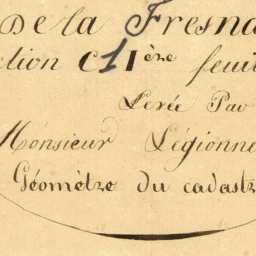 De la Fresna
ction C1 1ère feuil
Levée Par
Monsieur Légionne
Géomètre du cadastr